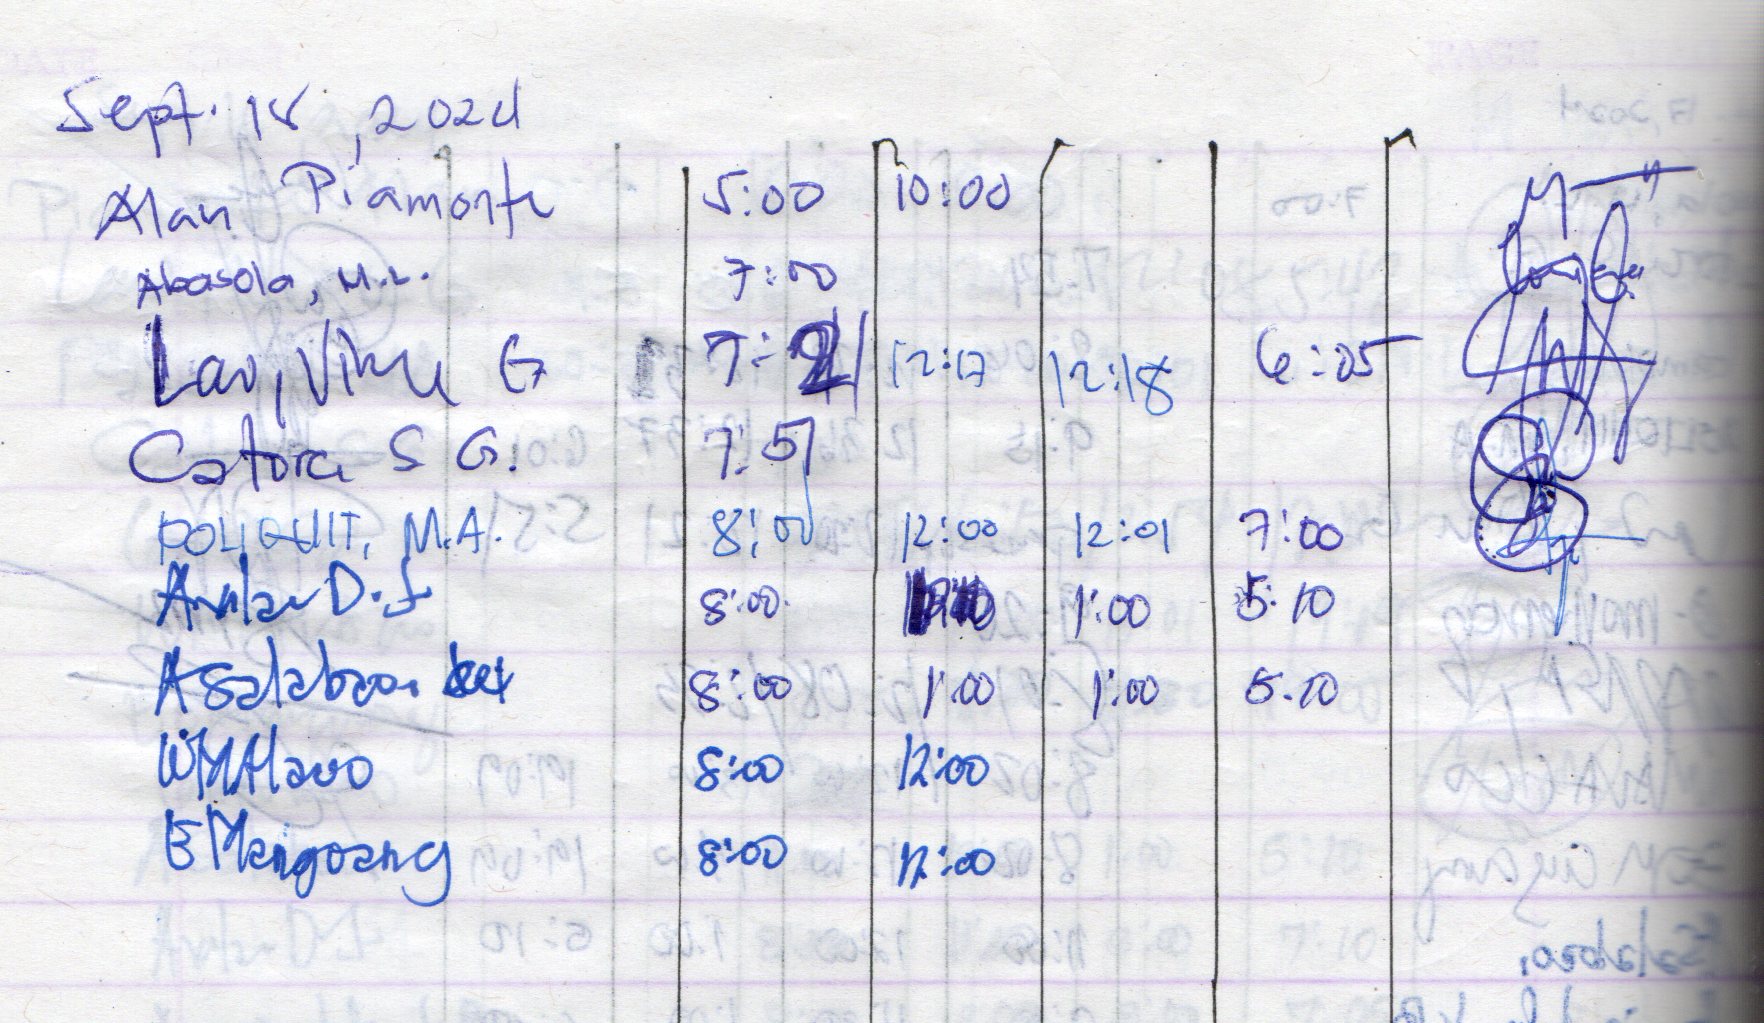 Sept. 18, 2024
Alan Piamonte 5:00 10:00
Abasola, M.L. 7:00
Lao, Vince G 7:21 12:17 12:18 6:05
Catora S G. 7:51
POLIQUIT, M.A. 8:00 12:00 12:01 7:00
D.J 8:00 1:00 5:10
Asalaban 8:00 1:00 1:00 5:10
WMHavo 8:00 12:00
E Mangoang 8:00 12:00